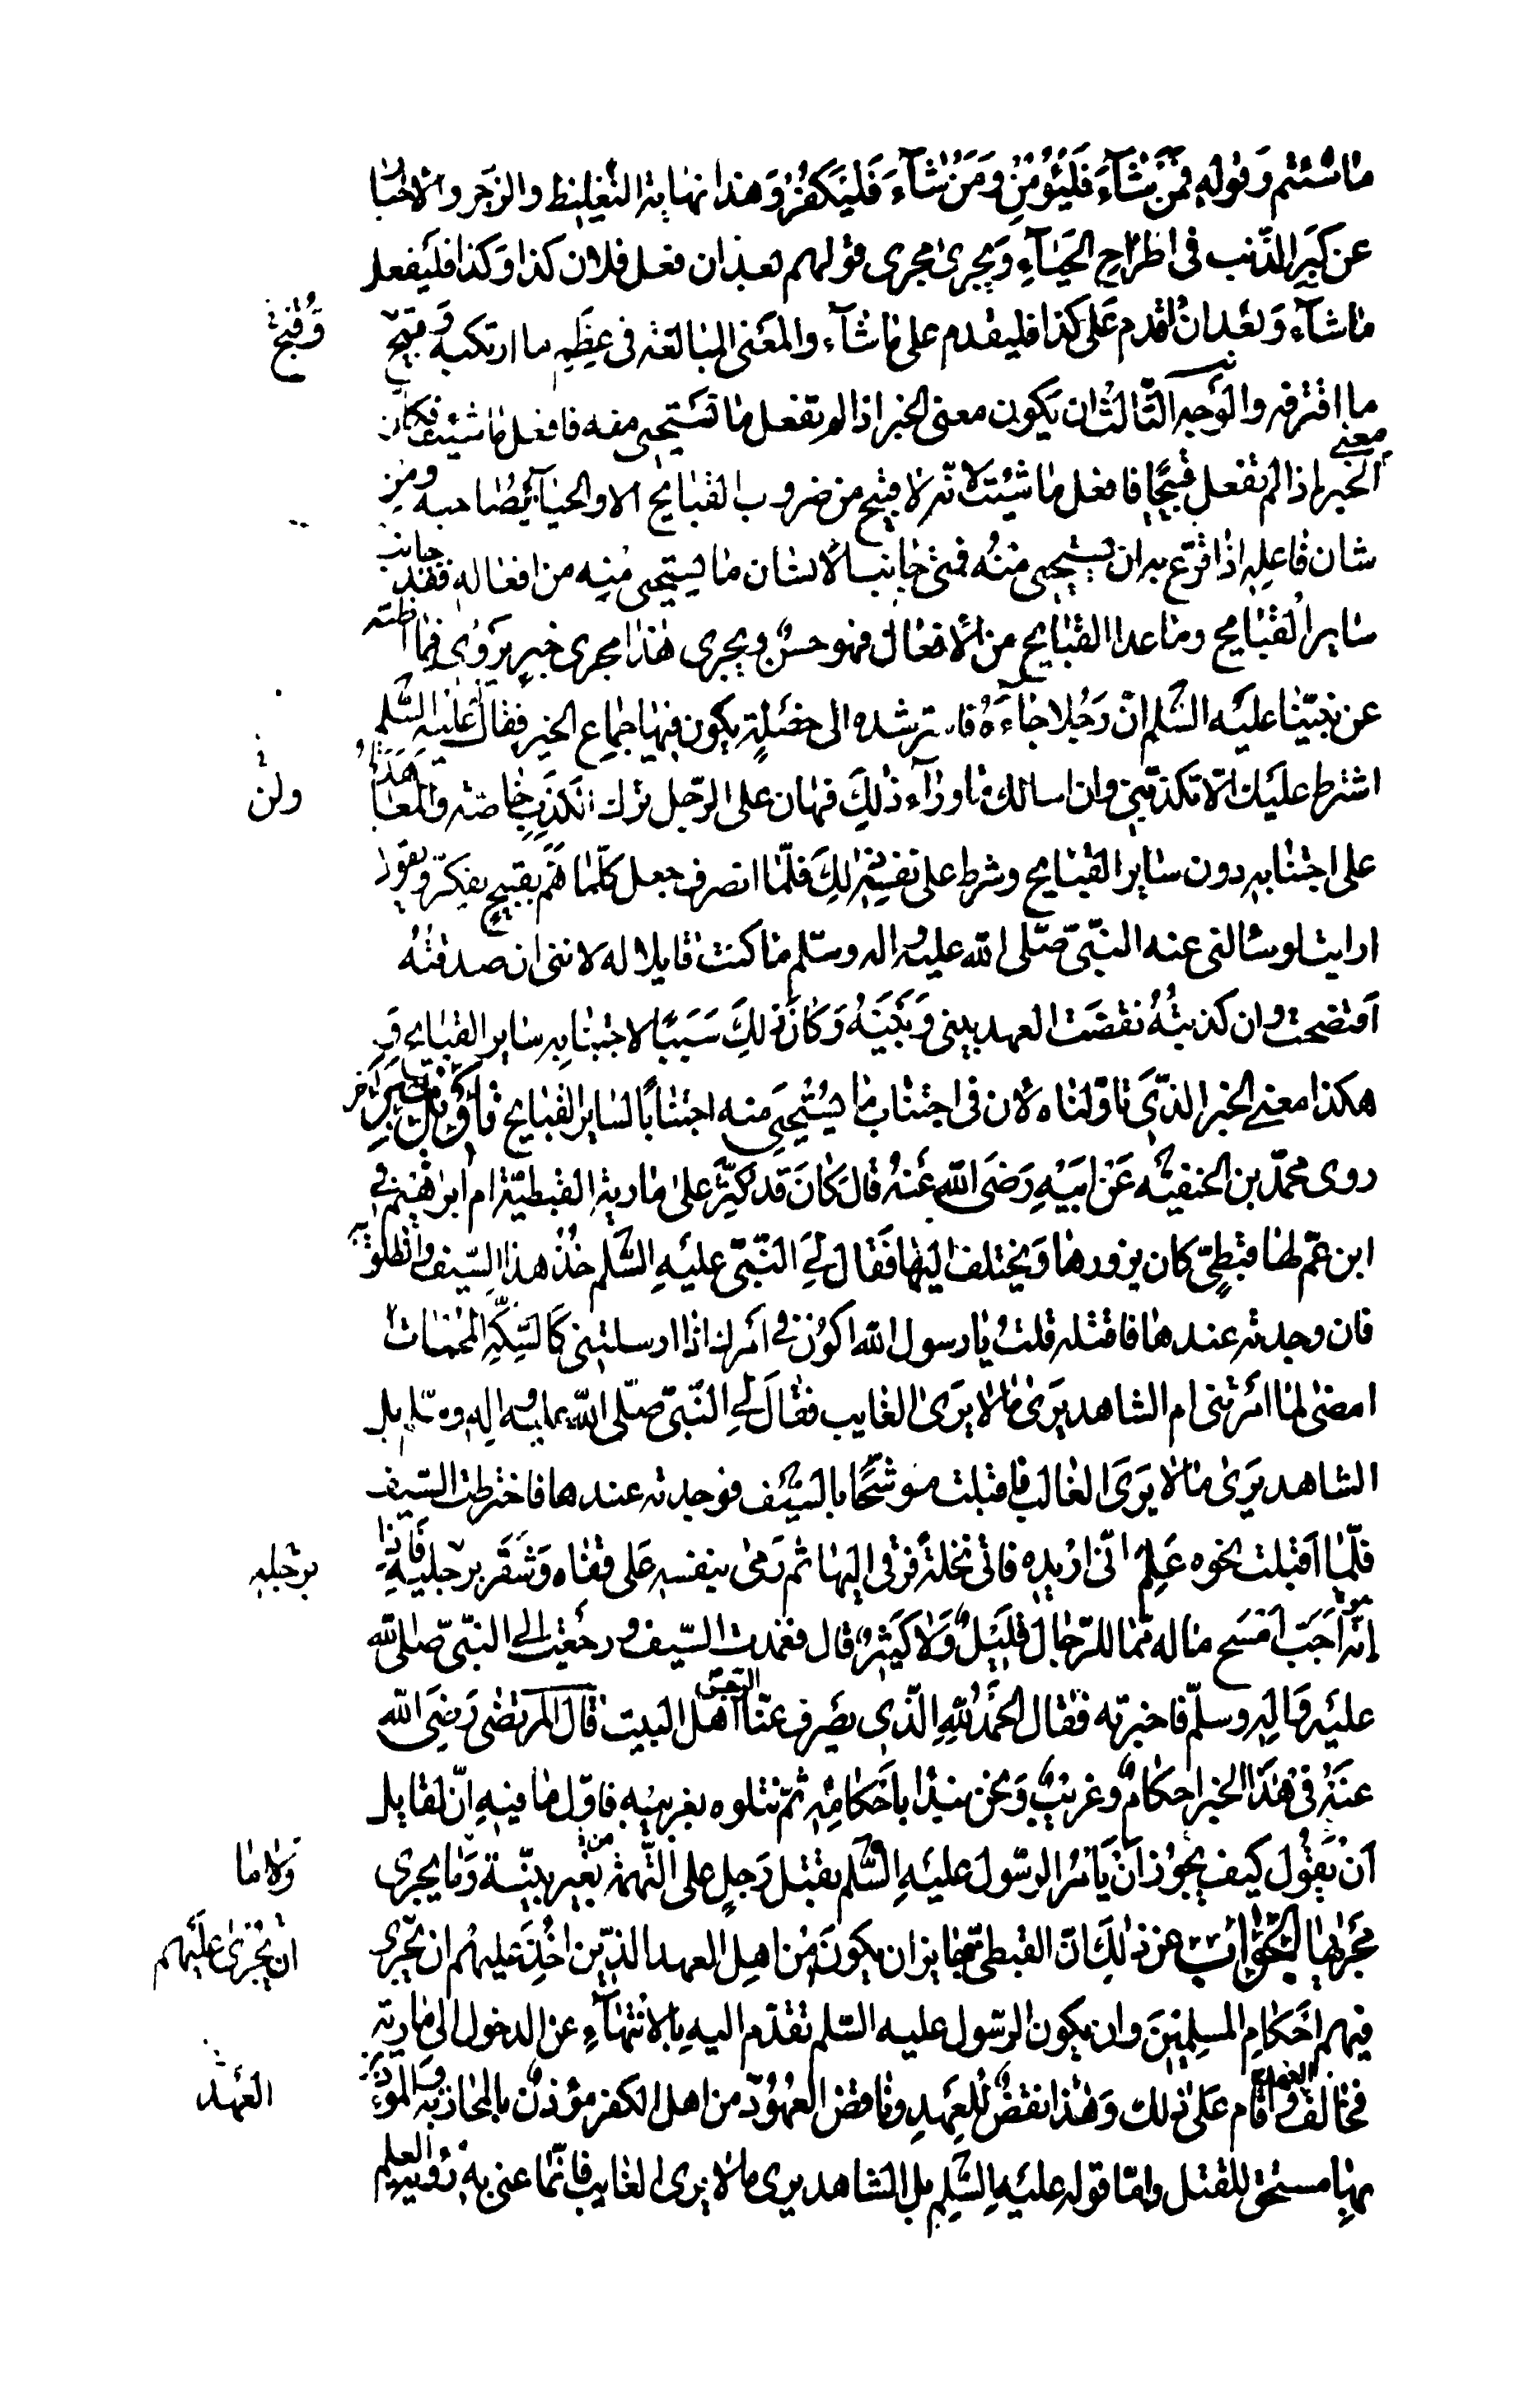 ما شئتم وقوله فمن شآء فليؤمن ومن شآء فليكفر وهذا نهاية التغليظ والزجر والاخبار
عن كبر الذنب في اطراح الحيآء ويجرى مجرى قولهم بعد ان فعل فلان كذا وكذا فليفعل
ما شآء وبعد ان اقدم على كذا فليقدم على ما شآء والمعنى المبالغة في عظم ما ارتكبه وقبح
وقبح
ما اقترفه والوجه الثالث ان يكون معنى الخبر اذا لم تفعل ما تستحيى منه فافعل ما شئت فكان
معنى
الخبر اذا لم تفعل قبيحا فافعل ما شئت لانه لا قبيح من ضروب القبايح الا والحيآء يصاحبه ومن
شان فاعله اذا قرع به ان يستحيى منه فمتى جانب الانسان ما يستحيى منه من افعاله فقد جانب
ساير القبايح وما عدا القبايح من الافعال فهو حسن ويجرى هذا مجرى خبر يروى فيما اظنه
عن نبينا عليه السلم ان رجلا جآءه فاسترشده الى خصلة يكون فيها جماع الخير فقال عليه السلم
اشترط عليك الا تكذبني وان اسالك ما ورآء ذلك فهان على الرجل ترك الكذب خاصة والمعاهدة
ولن
على اجتنابه دون ساير القبايح وشرط على نفسه ذلك فلما انصرف جعل كلما هم بقبيح يفكر ويقول
ارايت لو سالنى عنه النبي صلى الله عليه واله وسلم ما كنت قايلا له لاننى ان صدقته
افتضحت وان كذبته نقضت العهد بينى وبينه وكان ذلك سببا لاجتنابه ساير القبايح
هكذا معنى الخبر الذي تاولناه لان في اجتناب ما يستحيى منه اجتنابا لساير القبايح تاويل خبر اخر
روى محمد بن الحنفية عن ابيه رضى الله عنه قال كان قد كثر على مارية القبطية ام ابرهيم في
ابن عم لها قبطي كان يزورها ويختلف اليها فقال لي النبي عليه السلم خذ هذا السيف وانطلق به
فان وجدته عندها فاقتله قلت يا رسول الله اكون في امرك اذا ارسلتنى كالسكة المحماة
امضى لما امرتنى ام الشاهد يرى ما لا يرى الغايب فقال لي النبي صلى الله عليه واله وسلم بل
الشاهد يرى ما لا يرى الغائب فاقبلت متوشحا بالسيف فوجدته عندها فاخترطت السيف
فلما اقبلت نحوه علم انى اريده فاتى نخلة فرقى اليها ثم رمى بنفسه على قفاه وشغر برجليه فاذا
برجله
انه اجب امسح ما له مما للرجال قليل ولا كثير قال فغمدت السيف ورجعت الى النبي صلى الله
عليه واله وسلم فاخبرته فقال الحمد لله الذي يصرف عنا الرجس اهل البيت قال المرتضى رضى الله
عنه في هذا الخبر احكام وغريب ونحن نبدا باحكامه ثم نتلوه بغريبه فاول ما فيه ان لقايل
ان يقول كيف يجوز ان يامر الرسول عليه السلم بقتل رجل على التهمة من بغير بينة وما يجرى
ولا ما
مجراها الجواب عن ذلك ان القبطى جايز ان يكون من اهل العهد الذين اخذ عليهم ان يجرى
ان يجرى عليهم
فيهم احكام المسلمين وان يكون الرسول عليه السلم تقدم اليه بالانتهآء عن الدخول الى مارية
فخالف واقام على ذلك وهذا نقض للعهد وناقض العهود من اهل الكفر مؤذن بالمحاربة والمؤذن
العهد
بها مستحق للقتل واما قوله عليه السلم بل الشاهد يرى ما لا يرى الغايب فانما عنى به رؤية العلم